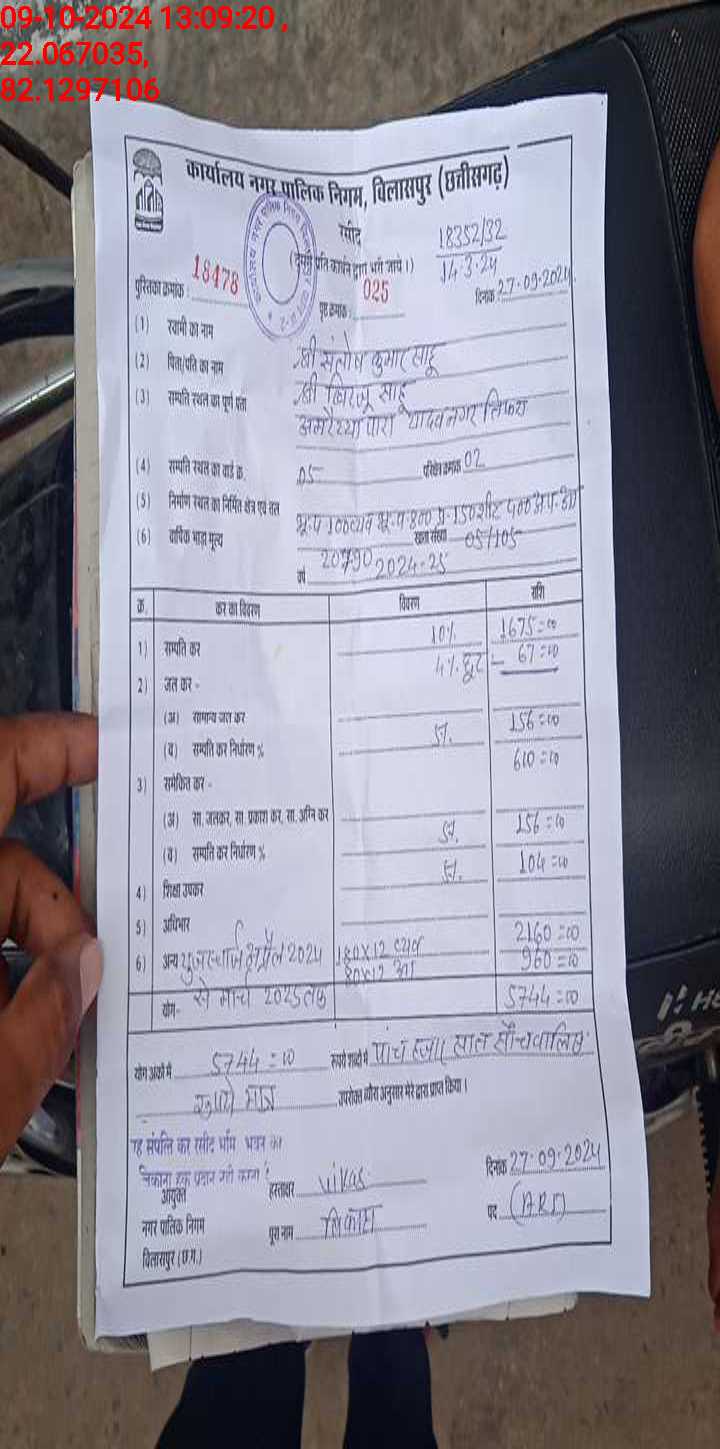 09-10-2024 13:09:20 ,
22.067035,
82.1297106
कार्यालय नगर पालिक निगम, बिलासपुर (छत्तीसगढ़)
रसीद
18352/32
14-3-24
(दूसरी प्रति कार्बन द्वारा भरी जाये।)
पुस्तिका क्रमांक : 18478 पृष्ठ क्रमांक : 025 दिनांक 27-09-2024
(1) स्वामी का नाम श्री संतोष कुमार साहू
(2) पिता/पति का नाम श्री साहू
(3) सम्पति स्थल का पूर्ण पता पारा यादव नगर तिफरा
(4) सम्पति स्थल का वार्ड क्र. 05 परिक्षेत्र क्रमांक 02
(5) निर्माण स्थल का निर्मित क्षेत्र एवं तल
(6) वार्षिक भाड़ा मूल्य 20790 खाता संख्या 05/105
वर्ष 2024-25
क्र. कर का विवरण विवरण राशि
1) सम्पति कर 10% 1675=00
4% छूट - 67=00
2) जल कर -
(अ) सामान्य जल कर 156=00
(ब) सम्पति कर निर्धारण % 610=00
3) समेकित कर -
(अ) सा. जलकर, सा. प्रकाश कर, सा. अग्नि कर 156=00
(ब) सम्पति कर निर्धारण % 104=00
4) शिक्षा उपकर
5) अधिभार 2160=00
6) अन्य यूजरचार्ज अप्रैल 2024 180X12 व्यव 960=00
से मार्च 2025 तक 80X12 आ
योग- 5744=00
योग अंकों में 5744=00 रूपये शब्दों में पांच हजार सात सौ चवालिस
रूपये मात्र उपरोक्त ब्यौरा अनुसार मेरे द्वारा प्राप्त किया।
यह संपत्ति कर रसीद भूमि भवन का
हक प्रदान नहीं करता
दिनांक 27-09-2024
आयुक्त हस्ताक्षर vikas
नगर पालिक निगम पूरा नाम विकास पद (ARI)
बिलासपुर (छ.ग.)